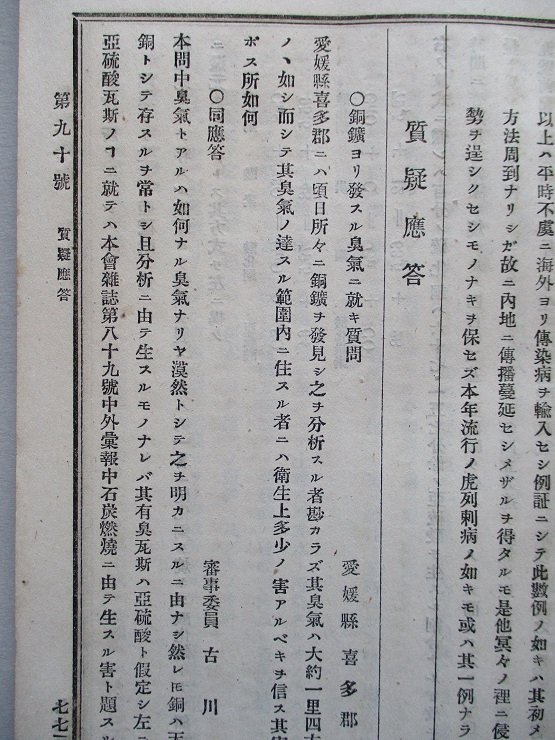 以上ハ平時不虞ニ海外ヨリ傳染病ヲ輸入セシ例証ニシテ此數例ノ如キハ其初メ
方法周到ナリシガ故ニ內地ニ傳播蔓延セシメザルヲ得タルモ是他冥々ノ裡ニ侵
勢ヲ逞シクセシモノナキヲ保セズ本年流行ノ虎列刺病ノ如キモ或ハ其一例ナラ
質疑應答
〇銅鑛ヨリ發スル臭氣ニ就キ質問
愛媛縣喜多郡
愛媛縣喜多郡ニハ頃日所々ニ銅鑛ヲ發見シ之ヲ分析スル者尠カラズ其臭氣ハ大約一里四方
ノヽ如シ而シテ其臭氣ノ達スル範圍內ニ住スル者ニハ衞生上多少ノ害アルベキヲ信ス其
ボス所如何
〇同應答
審事委員 古川
本問中臭氣トアルハ如何ナル臭氣ナリヤ漠然トシテ之ヲ明カニスルニ由ナシ然レ𪜈銅ハ
銅トシテ存スルヲ常トシ且分析ニ由テ生スルモノナレバ其有臭瓦斯ハ亞硫酸ト假定シ左ニ
亞硫酸瓦斯ノヿニ就テハ本會雜誌第八十九號中外彙報中石炭燃燒ニ由テ生スル害ト題スル
第九十號 質疑應答 七七